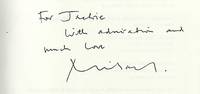 For Jackie
with admiration and
much love